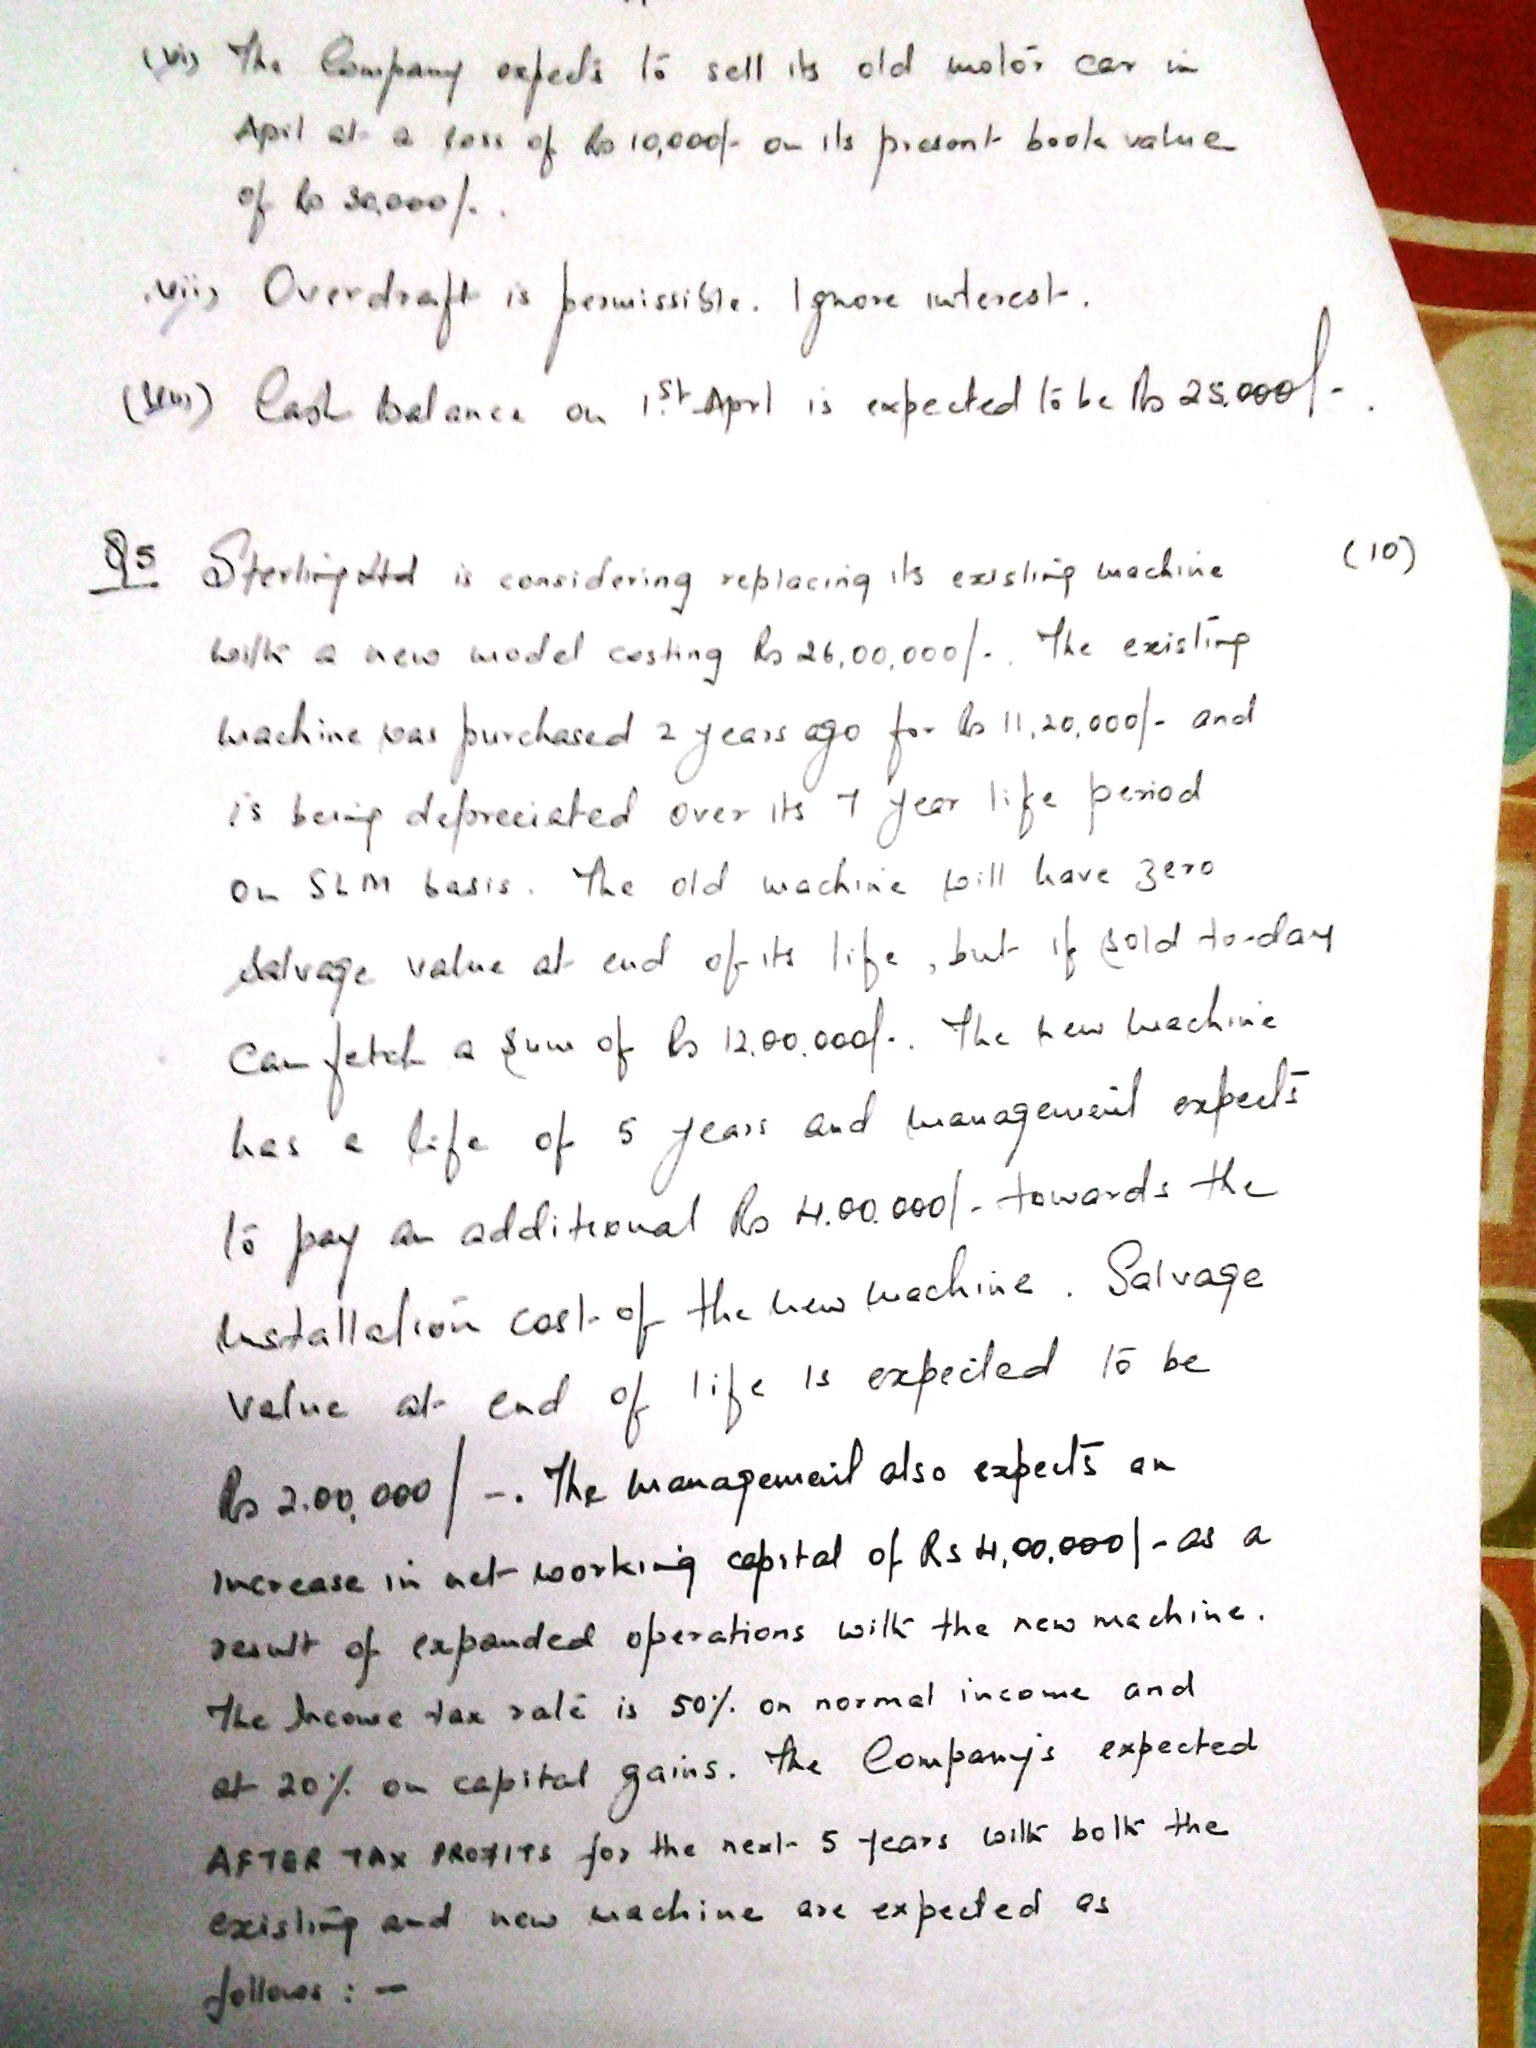 (vi) The Company expects to sell its old motor car in
April at a loss of Rs 10,000/- on its present book value
of Rs 30,000/-.
(vii) Overdraft is permissible. Ignore interest.
(viii) Cash balance on 1st April is expected to be Rs 25,000/-.
Q5 Sterling Ltd is considering replacing its existing machine (10)
with a new model costing Rs 26,00,000/-. The existing
machine was purchased 2 years ago for Rs 11,20,000/- and
is being depreciated over its 7 year life period
on SLM basis. The old machine will have zero
salvage value at end of its life, but if sold to-day
can fetch a sum of Rs 12,00,000/-. The new machine
has a life of 5 years and management expects
to pay an additional Rs 4,00,000/- towards the
installation cost of the new machine. Salvage
value at end of life is expected to be
Rs 2,00,000/-. The management also expects an
increase in net working capital of Rs 4,00,000/- as a
result of expanded operations with the new machine.
The Income tax rate is 50% on normal income and
at 20% on capital gains. The Company's expected
AFTER TAX PROFITS for the next 5 years with both the
existing and new machine are expected as
follows : -